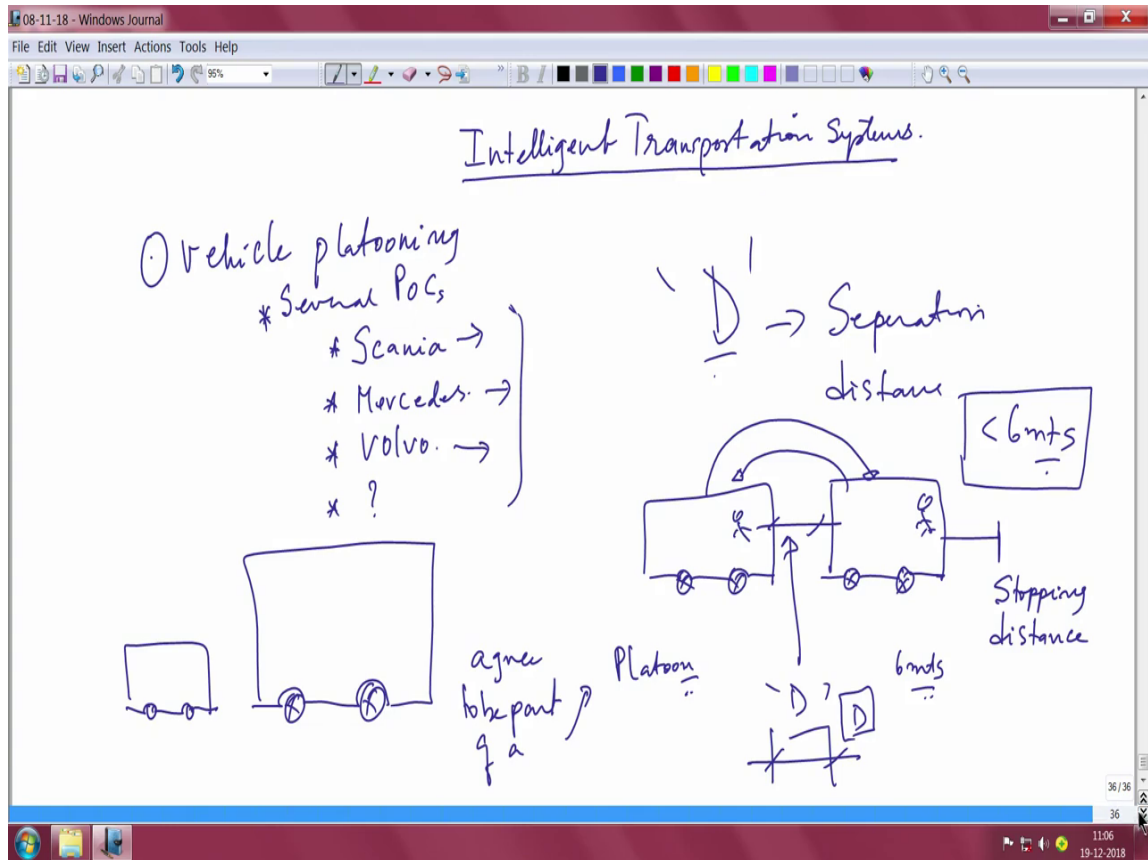 08-11-18 - Windows Journal
File Edit View Insert Actions Tools Help
95%
B I
Intelligent Transportation Systems.
Vehicle platooning
* Several POCs
* Scania →
* Mercedes. →
* Volvo. →
* ?
'D' → Seperation
distance
<6mts
Stopping
distance
agree
to be part
of a
Platoon
6mts
'D'
D
36/36
36
11:06
19-12-2018